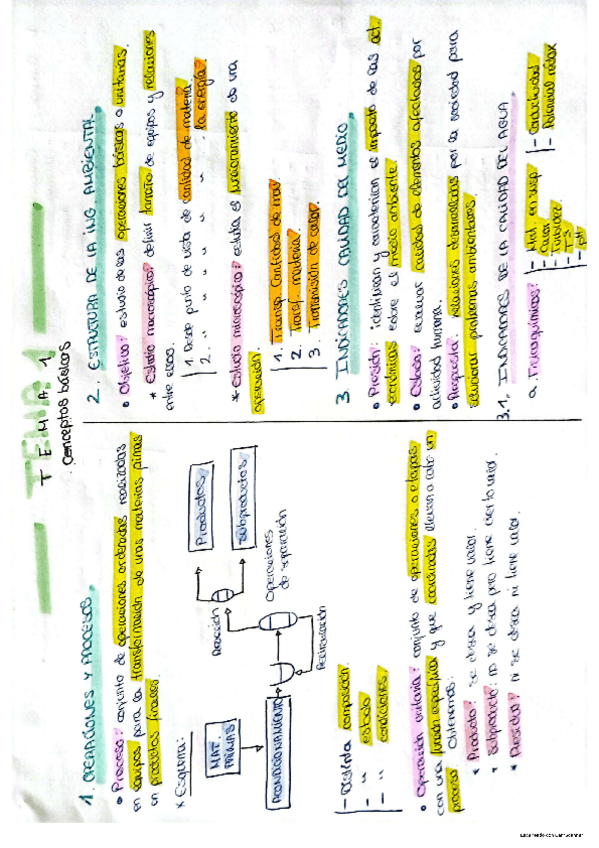 TEMA 1
TEMA 1
Conceptos básicos
1. OPERACIONES Y PROCESOS
• Proceso: conjunto de operaciones ordenadas realizadas
en equipos para la transformación de unas materias primas
en productos finales.
* Esquema:
MAT.
PRIMAS
ACONDICIONAMIENTO
Reacción
Recirculación
Operaciones
de separación
Productos
Subproductos
- Distinta composición.
- " estado
- " condiciones.
• Operación unitaria: conjunto de operaciones o etapas
con una función específica y que coordinadas llevan a cabo un
proceso. Obtenemos:
* Producto: se desea y tiene valor.
* Subproducto: no se desea pero tiene cierto valor.
* Residuo: ni se desea ni tiene valor.
2. ESTRUCTURA DE LA ING. AMBIENTAL
• Objetivo: estudio de las operaciones básicas o unitarias.
* Estudio macroscópico: definir tamaño de equipos y relaciones
entre estos.
1. Desde punto de vista de cantidad de materia.
2. " " " " " " la energía.
* Estudio microscópico: estudia el funcionamiento de una
operación.
1. Transp. Cantidad de mov.
2. Transf. materia.
3. Transmisión de calor.
3 INDICADORES CALIDAD DEL MEDIO
• Presión: identifican y caracterizan el impacto de las act.
económicas sobre el medio ambiente.
• Estado: evaluar calidad de elementos afectados por
actividad humana.
• Respuesta: relaciones desarrolladas por la sociedad para
solucionar problemas ambientales.
3.1. INDICADORES DE LA CALIDAD DEL AGUA
a. Fisicoquímicos:
- Mat. en susp
- Color
- Turbidez
- Tª
- pH
- Conductividad
- Potencial redox